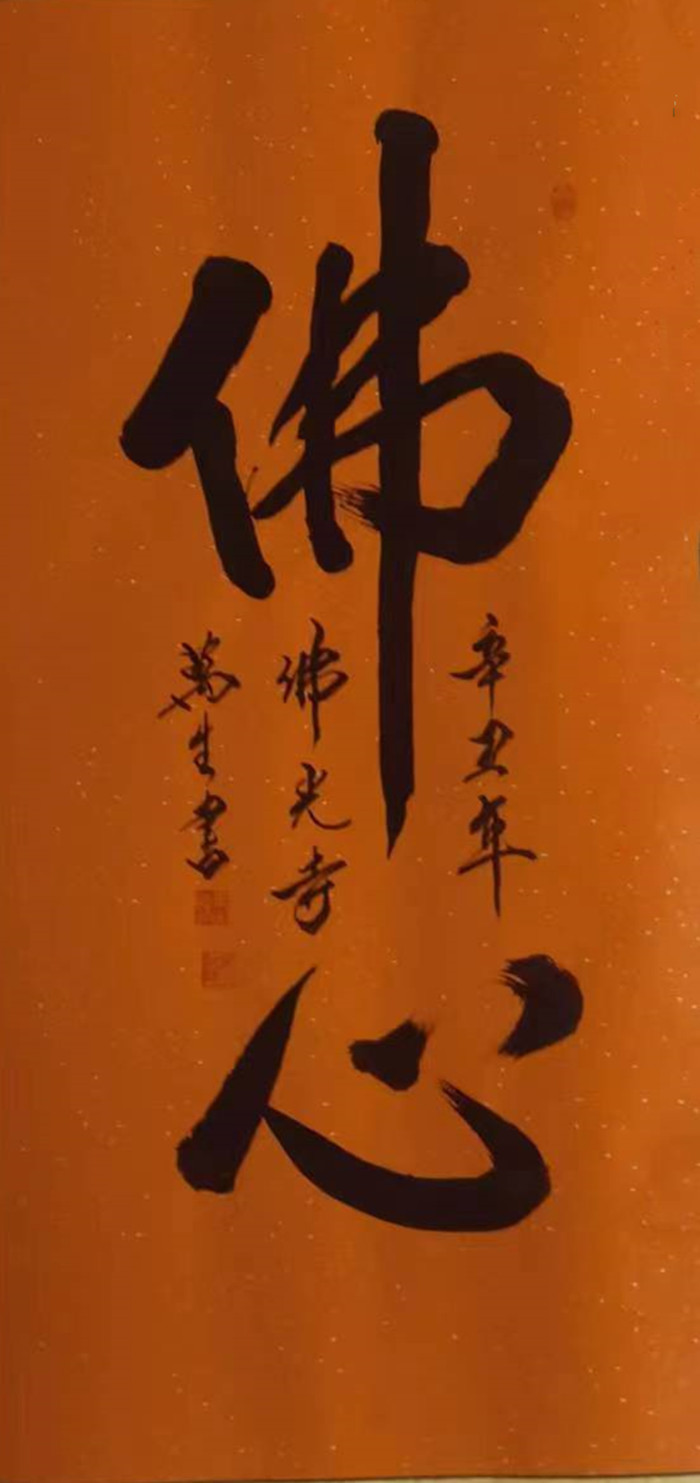 佛心
辛丑年
佛光寺
萬生書